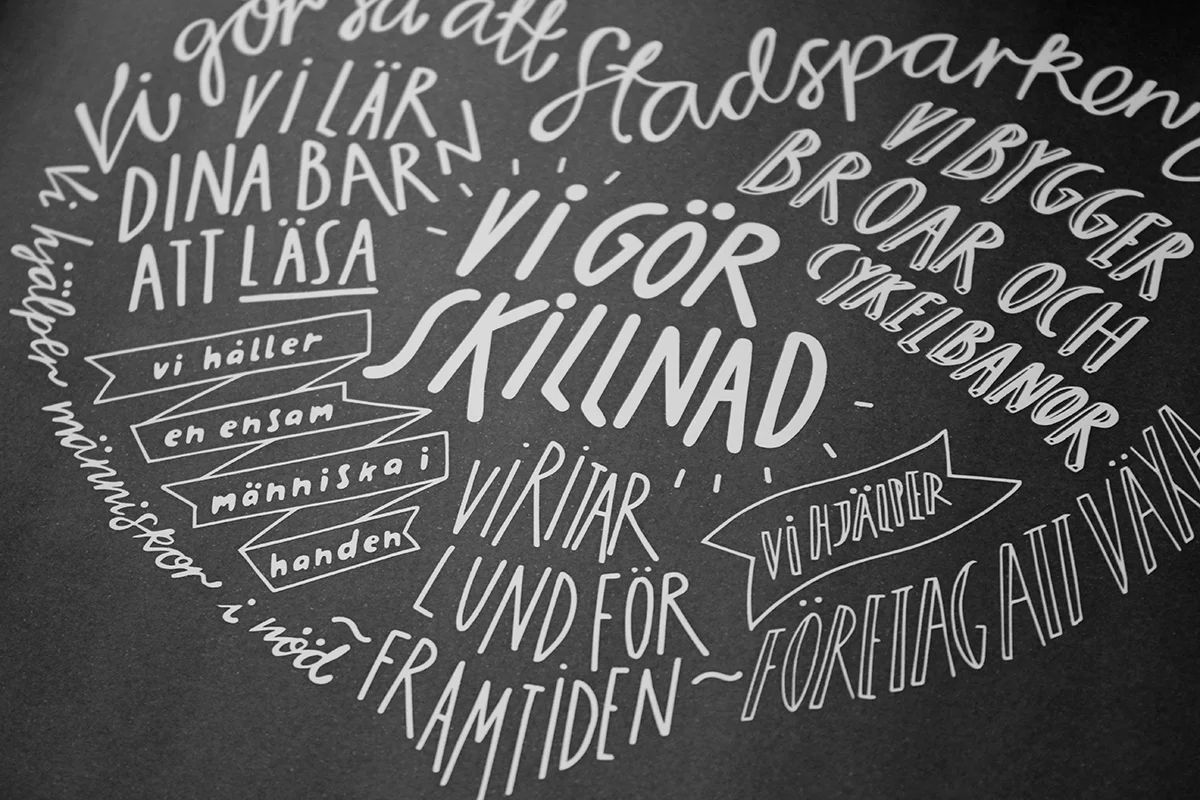 Vi gör så att Stadsparken
VI LÄR
DINA BARN
ATT LÄSA
VI BYGGER
BROAR OCH
CYKELBANOR
VI GÖR
SKILLNAD
vi håller
en ensam
människa i
handen
Vi hjälper människor i nöd
VI RITAR
LUND FÖR
FRAMTIDEN
VI HJÄLPER
FÖRETAG ATT VÄXA